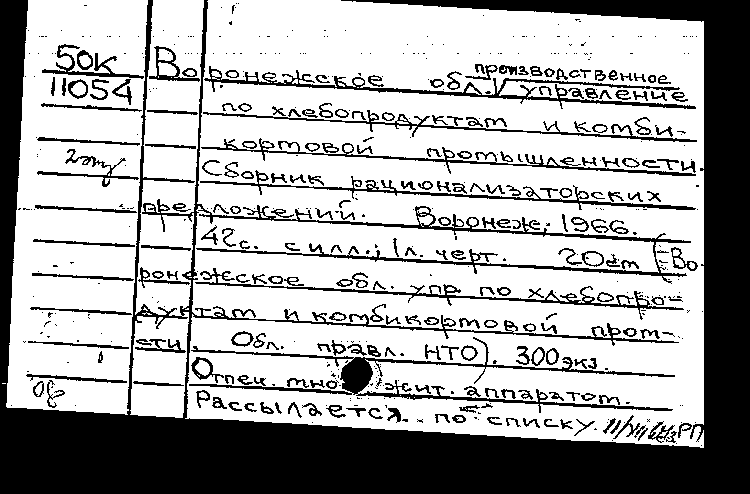 50к
11054
Воронежское обл. производственное управление
по хлебопродуктам и комби-
кормовой промышленности.
2 экз
Сборник рационализаторских
предложений. Воронеж, 1966.
42с. с илл.; 1л. черт. 20см (Во-
ронежское обл. упр. по хлебопро-
дуктам и комбикормовой пром-
сти. Обл. правл. НТО). 300экз.
Отпеч. множит. аппаратом.
Рассылается по списку.
РП